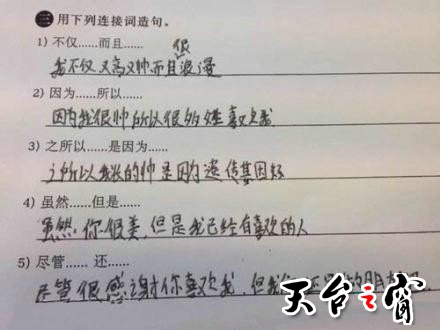 三 用下列连接词造句。
1) 不仅……而且……
我不仅又高又帅而且很浪漫
2) 因为……所以……
因为我很帅所以很多姓喜欢我
3) 之所以……是因为……
之所以我长的帅是因为遗传基因好
4) 虽然……但是……
虽然你很美,但是我已经有喜欢的人
5) 尽管…… 还……
尽管很感谢你喜欢我,但我们还是
天台之窗